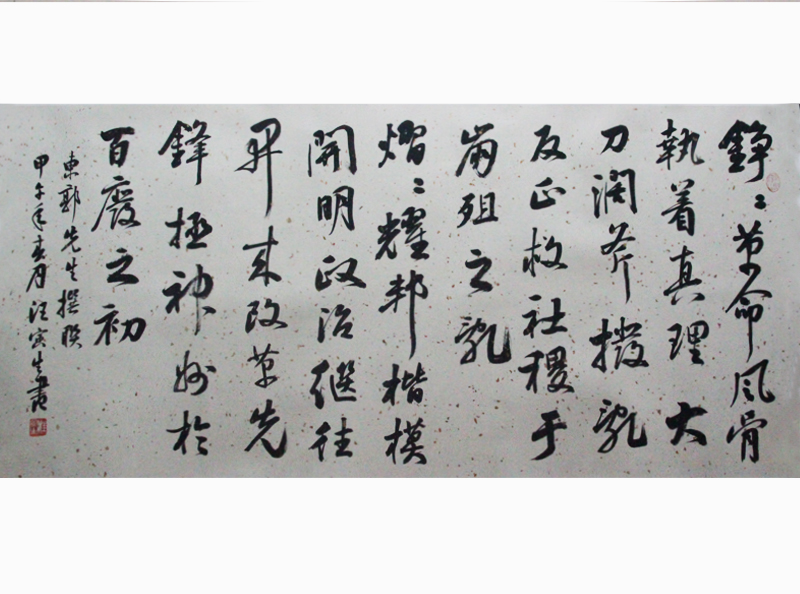 錚〻革命风骨
執着真理大
刀濶斧撥亂
反正救社稷于
崩殂之亂
熠〻耀邦楷模
開明政治繼往
开来改革先
鋒拯神州於
百廢之初
東郭先生撰联
甲午年春月汪寅生書